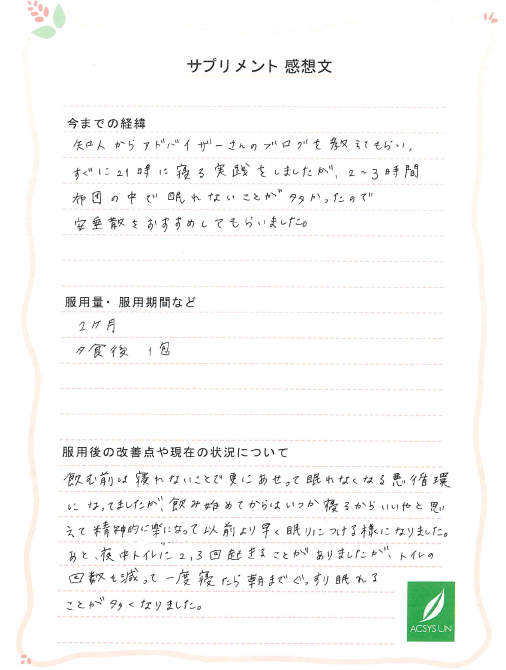 サプリメント 感想文
今までの経緯
知人からアドバイザーさんのブログを教えてもらい、
すぐに21時に寝る実践をしましたが、2~3時間
布団の中で眠れないことが多かったので
安垂散をおすすめしてもらいました。
服用量・服用期間など
2ヶ月
夕食後 1包
服用後の改善点や現在の状況について
飲む前は寝れないことで更にあせって眠れなくなる悪循環
になってましたが、飲み始めてからはいつか寝るからいいやと思
えて精神的に楽になって以前より早く眠りにつける様になりました。
あと、夜中トイレに2,3回起きることがありましたが、トイレの
回数も減って一度寝たら朝までぐっすり眠れる
ことが多くなりました。
ACSYS UN